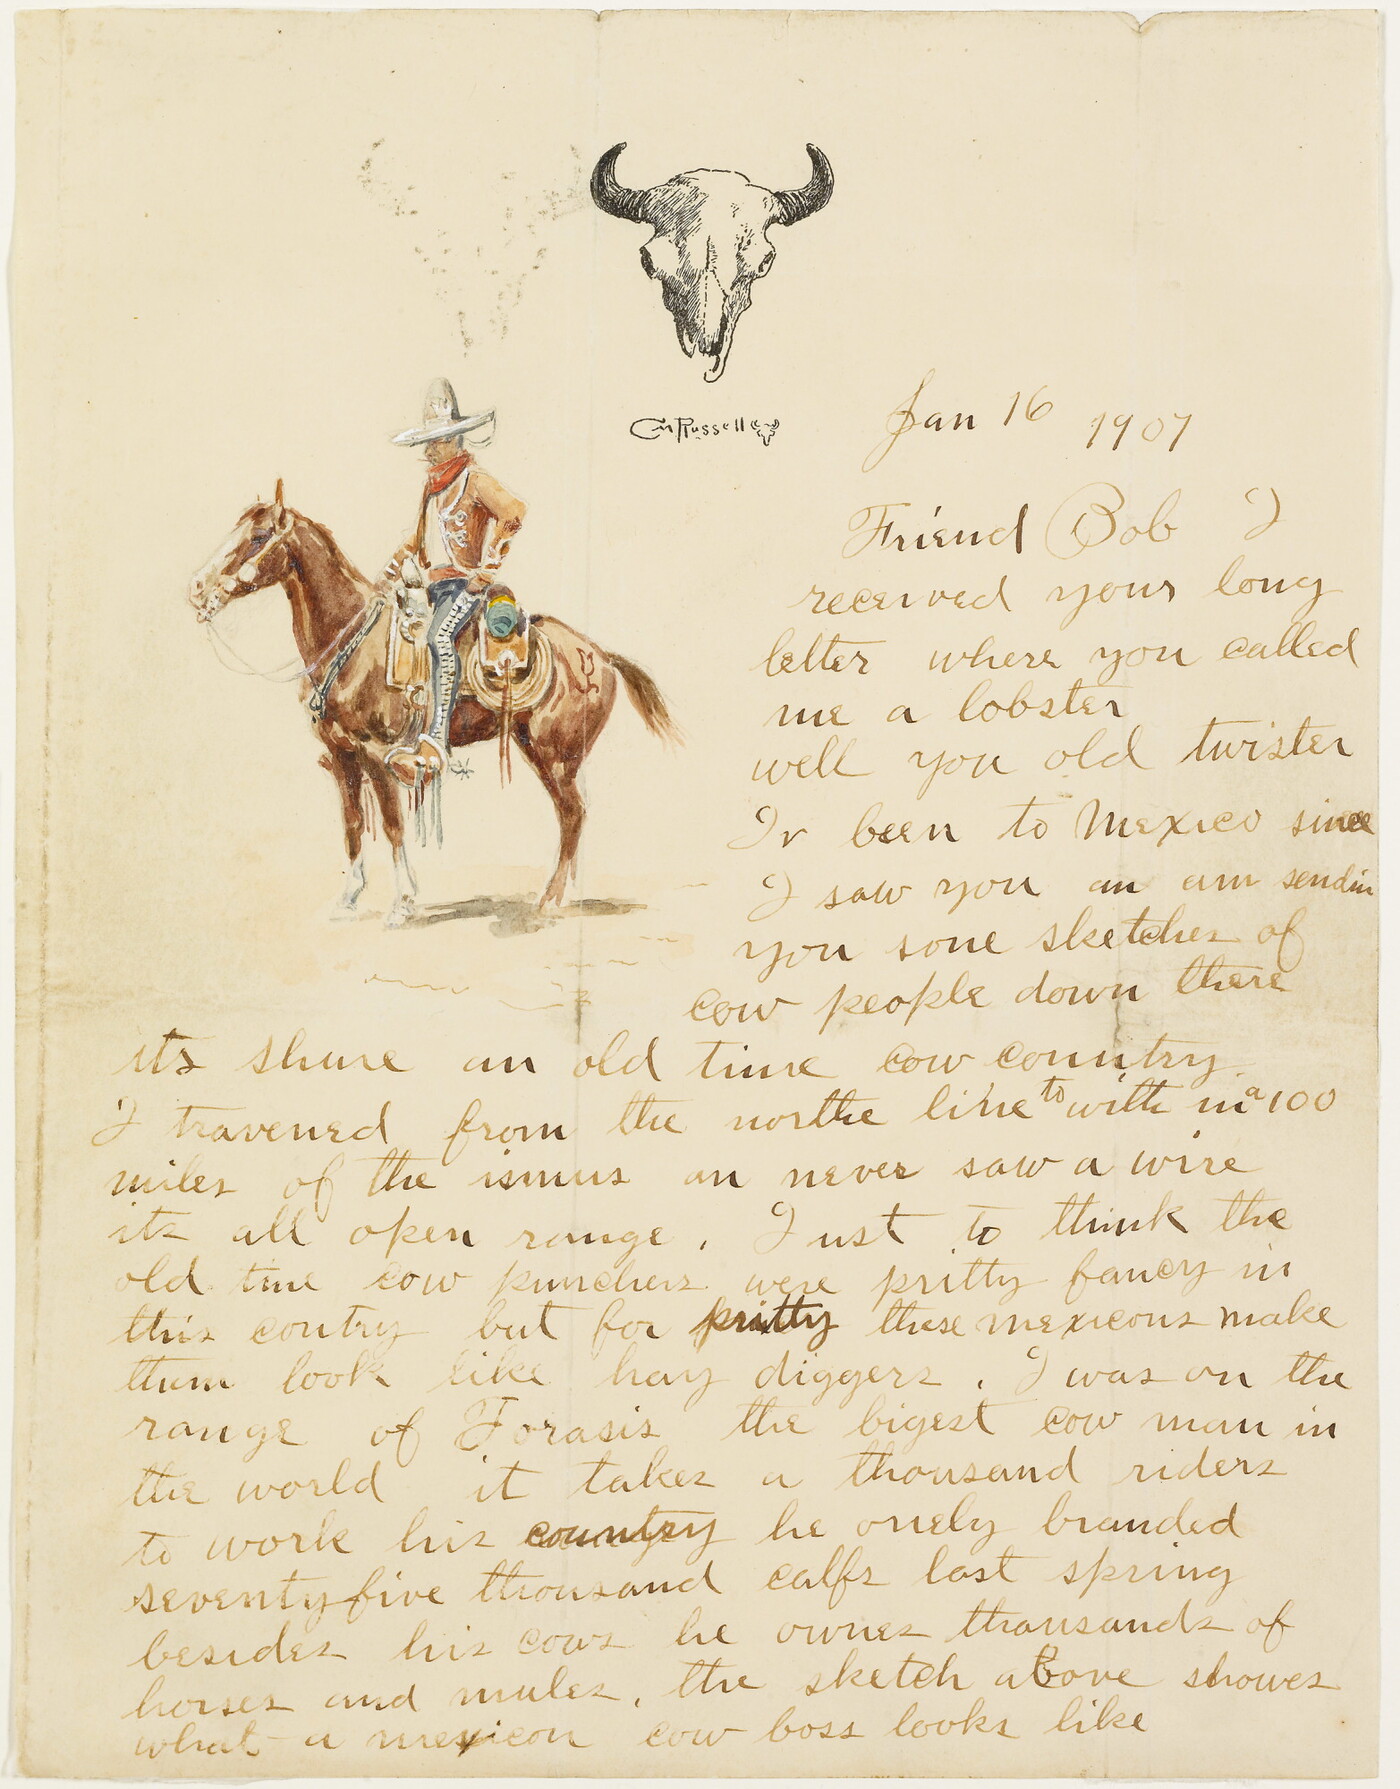 CM Russell
Jan 16 1907
Friend Bob I
received your long
letter where you called
me a lobster
well you old twister
Iv been to Mexico since
I saw you an am sendin
you some sketches of
cow people down there
its shure an old time cow country
I travened from the northe line to with in a 100
miles of the ismus an never saw a wire
its all open range. Just to think the
old time cow punchers were pritty fancy in
this contry but for pritty these mexicons make
them look like hay diggers. I was on the
range of Torasis the bigest cow man in
the world it takes a thousand riders
to work his country he onely branded
seventyfive thousand calfs last spring
besides his cows he ownes thousands of
horses and mules. the sketch above showes
what a mexicon cow boss looks like